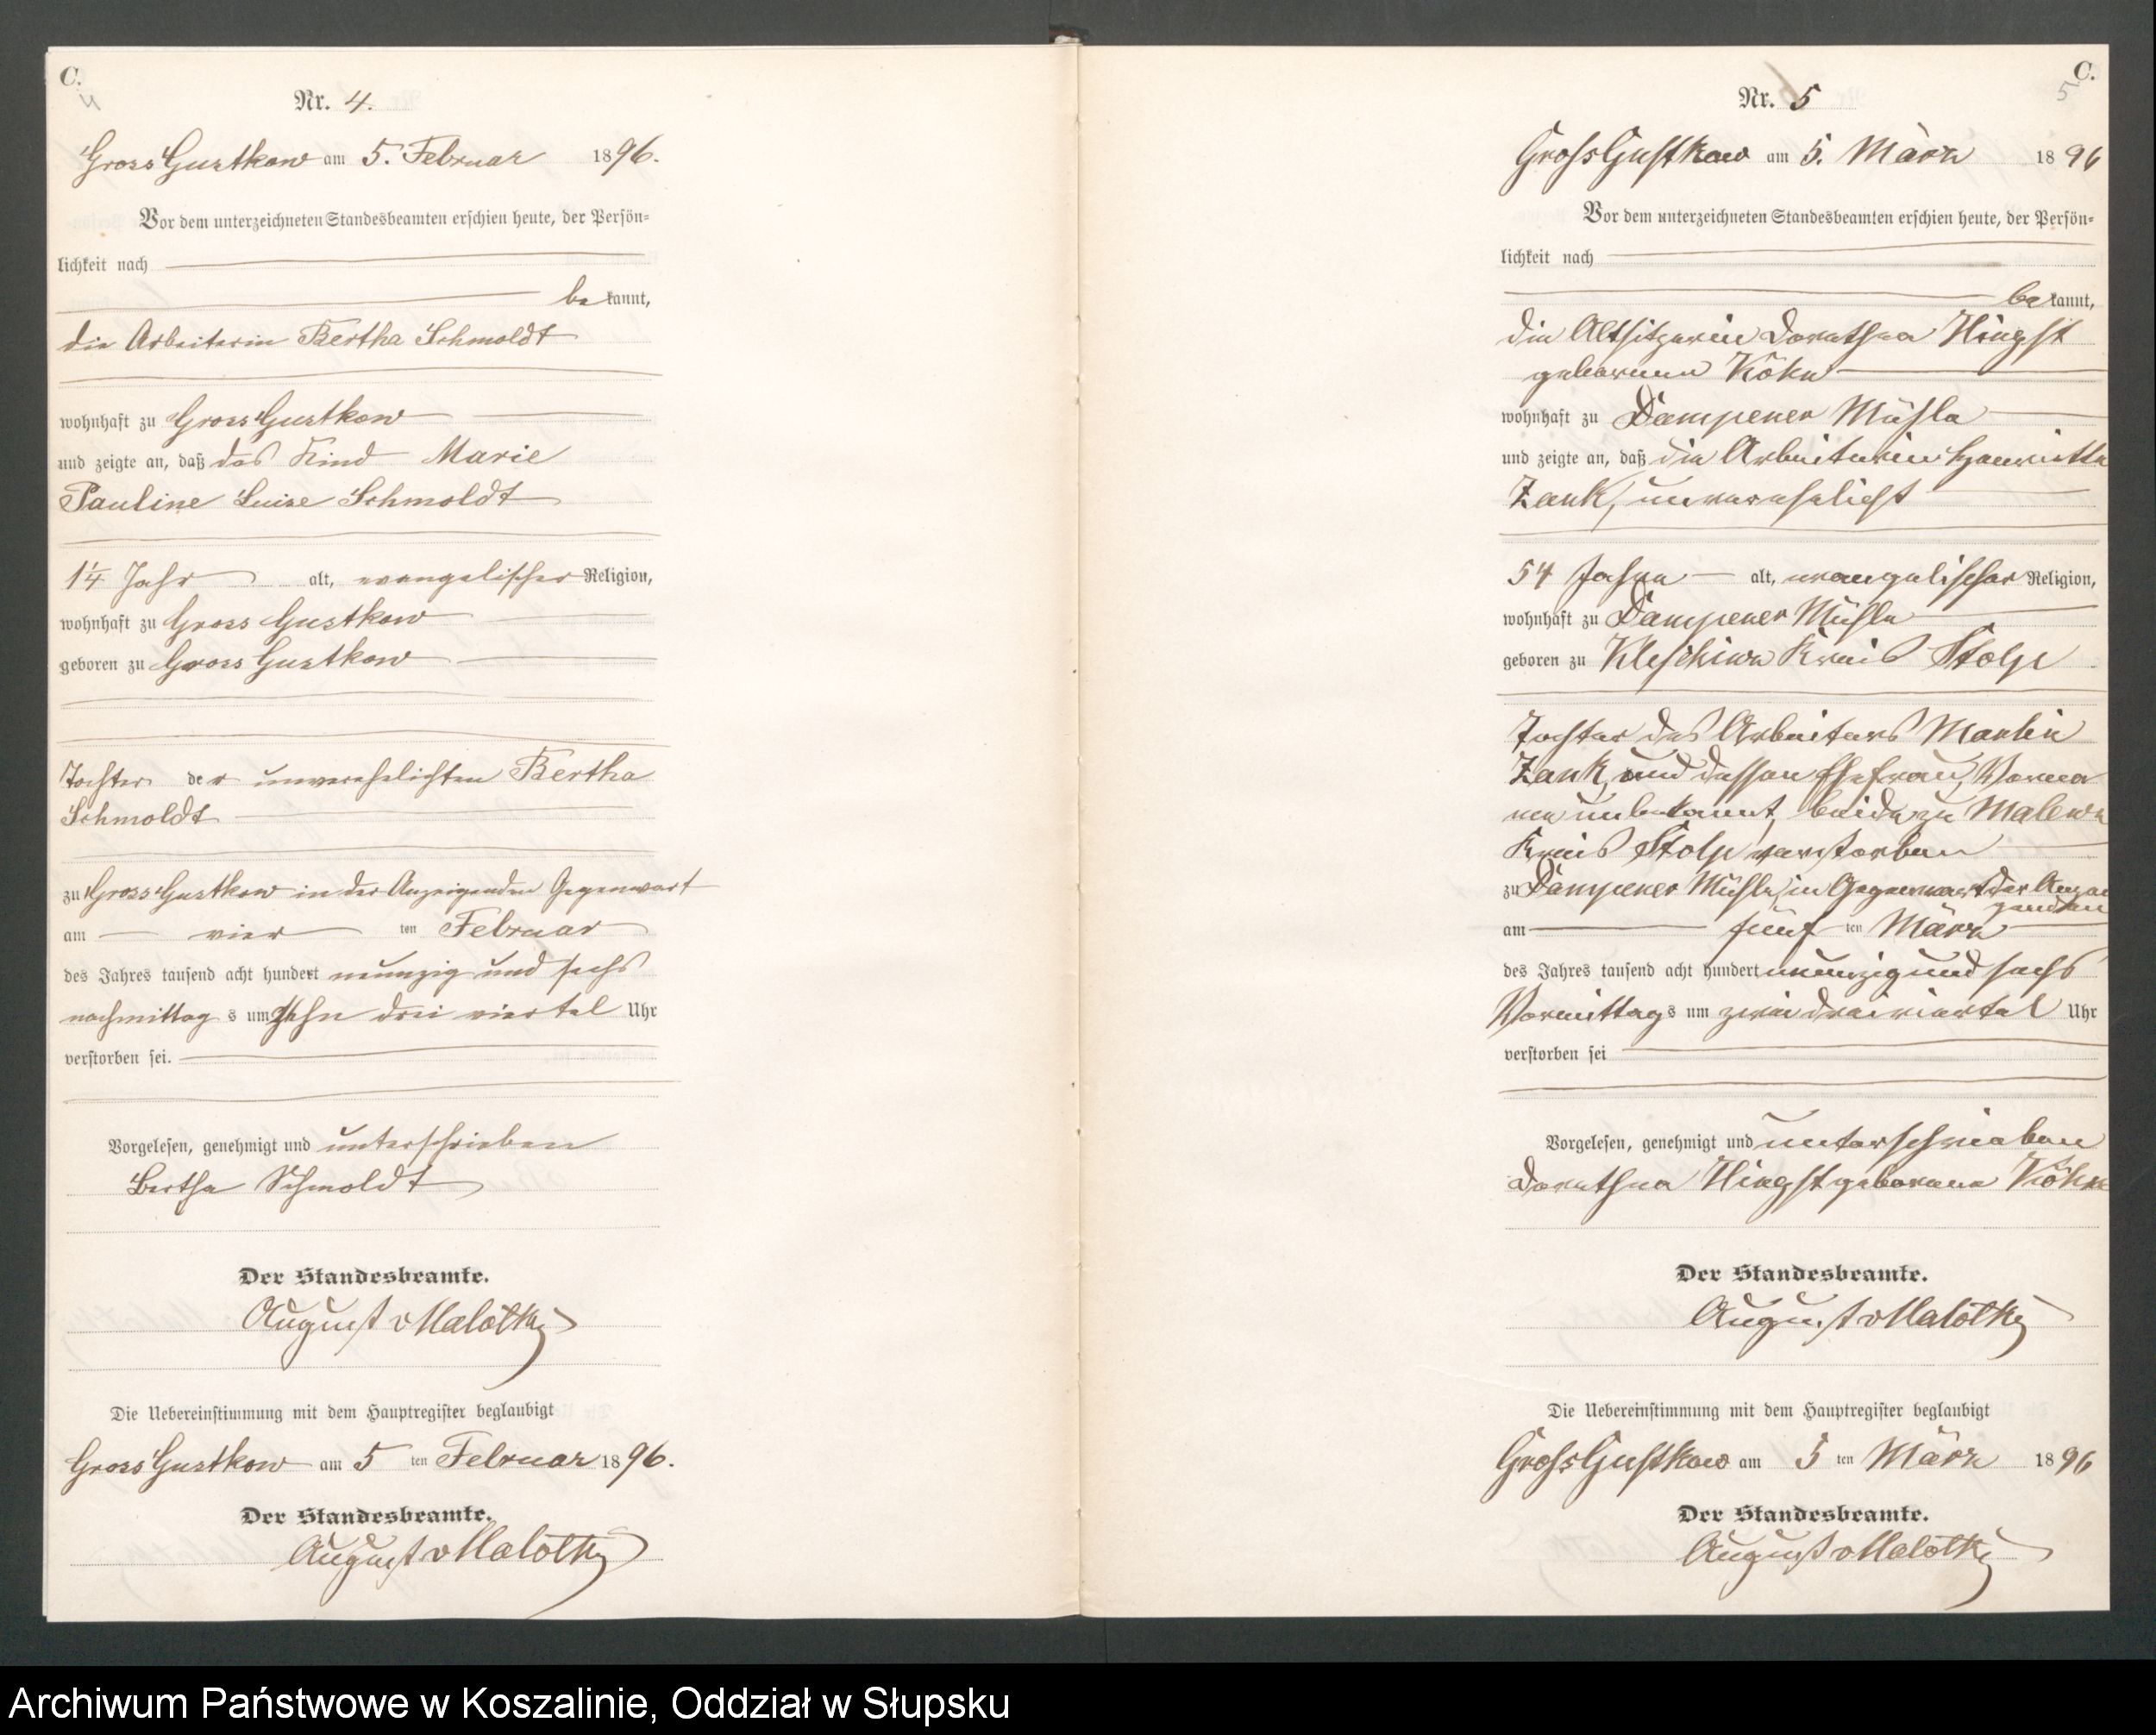 C.
4
Nr. 4.
Gross Gustkow am 5. Februar 1896.
Vor dem unterzeichneten Standesbeamten erschien heute, der Persön-
lichkeit nach
be kannt,
die Arbeiterin Bertha Schmoldt
wohnhaft zu Gross Gustkow
und zeigte an, daß das Kind Marie
Pauline Luise Schmoldt
1¼ Jahr alt, evangelischer Religion,
wohnhaft zu Gross Gustkow
geboren zu Gross Gustkow
Tochter der unverehelichten Bertha
Schmoldt
zu Gross Gustkow in der Anzeigenden Gegenwart
am vier ten Februar
des Jahres tausend acht hundert neunzig und sechs
nachmittag s um zehn drei viertel Uhr
verstorben sei.
Vorgelesen, genehmigt und unterschrieben
Bertha Schmoldt
Der Standesbeamte.
August v Malottky
Die Uebereinstimmung mit dem Hauptregister beglaubigt
Gross Gustkow am 5 ten Februar 1896.
Der Standesbeamte.
August v Malottky
C.
5
Nr. 5
Groß Gustkow am 5. März 1896
Vor dem unterzeichneten Standesbeamten erschien heute, der Persön-
lichkeit nach
be kannt,
die Altsitzerin Dorothea Hingst
geborene Köhn
wohnhaft zu Dampener Mühle
und zeigte an, daß die Arbeiterin Henriette
Zank, unverehelicht
54 Jahre alt, evangelischer Religion,
wohnhaft zu Dampener Mühle
geboren zu Kleschinz Kreis Stolp
Tochter des Arbeiters Martin
Zank, und dessen Ehefrau, Vorna
me unbekannt, beide zu
Kreis Stolp verstorben
zu Dampener Mühle, in Gegenwart der Anzei
genden
am fünf ten März
des Jahres tausend acht hundert neunzig und sechs
Vormittags um zwei dreiviertel Uhr
verstorben sei
Vorgelesen, genehmigt und unterschrieben
Dorothea Hingst geborene Köhn
Der Standesbeamte.
August v Malottky
Die Uebereinstimmung mit dem Hauptregister beglaubigt
Groß Gustkow am 5 ten März 1896
Der Standesbeamte.
August v Malottky
Archiwum Państwowe w Koszalinie, Oddział w Słupsku